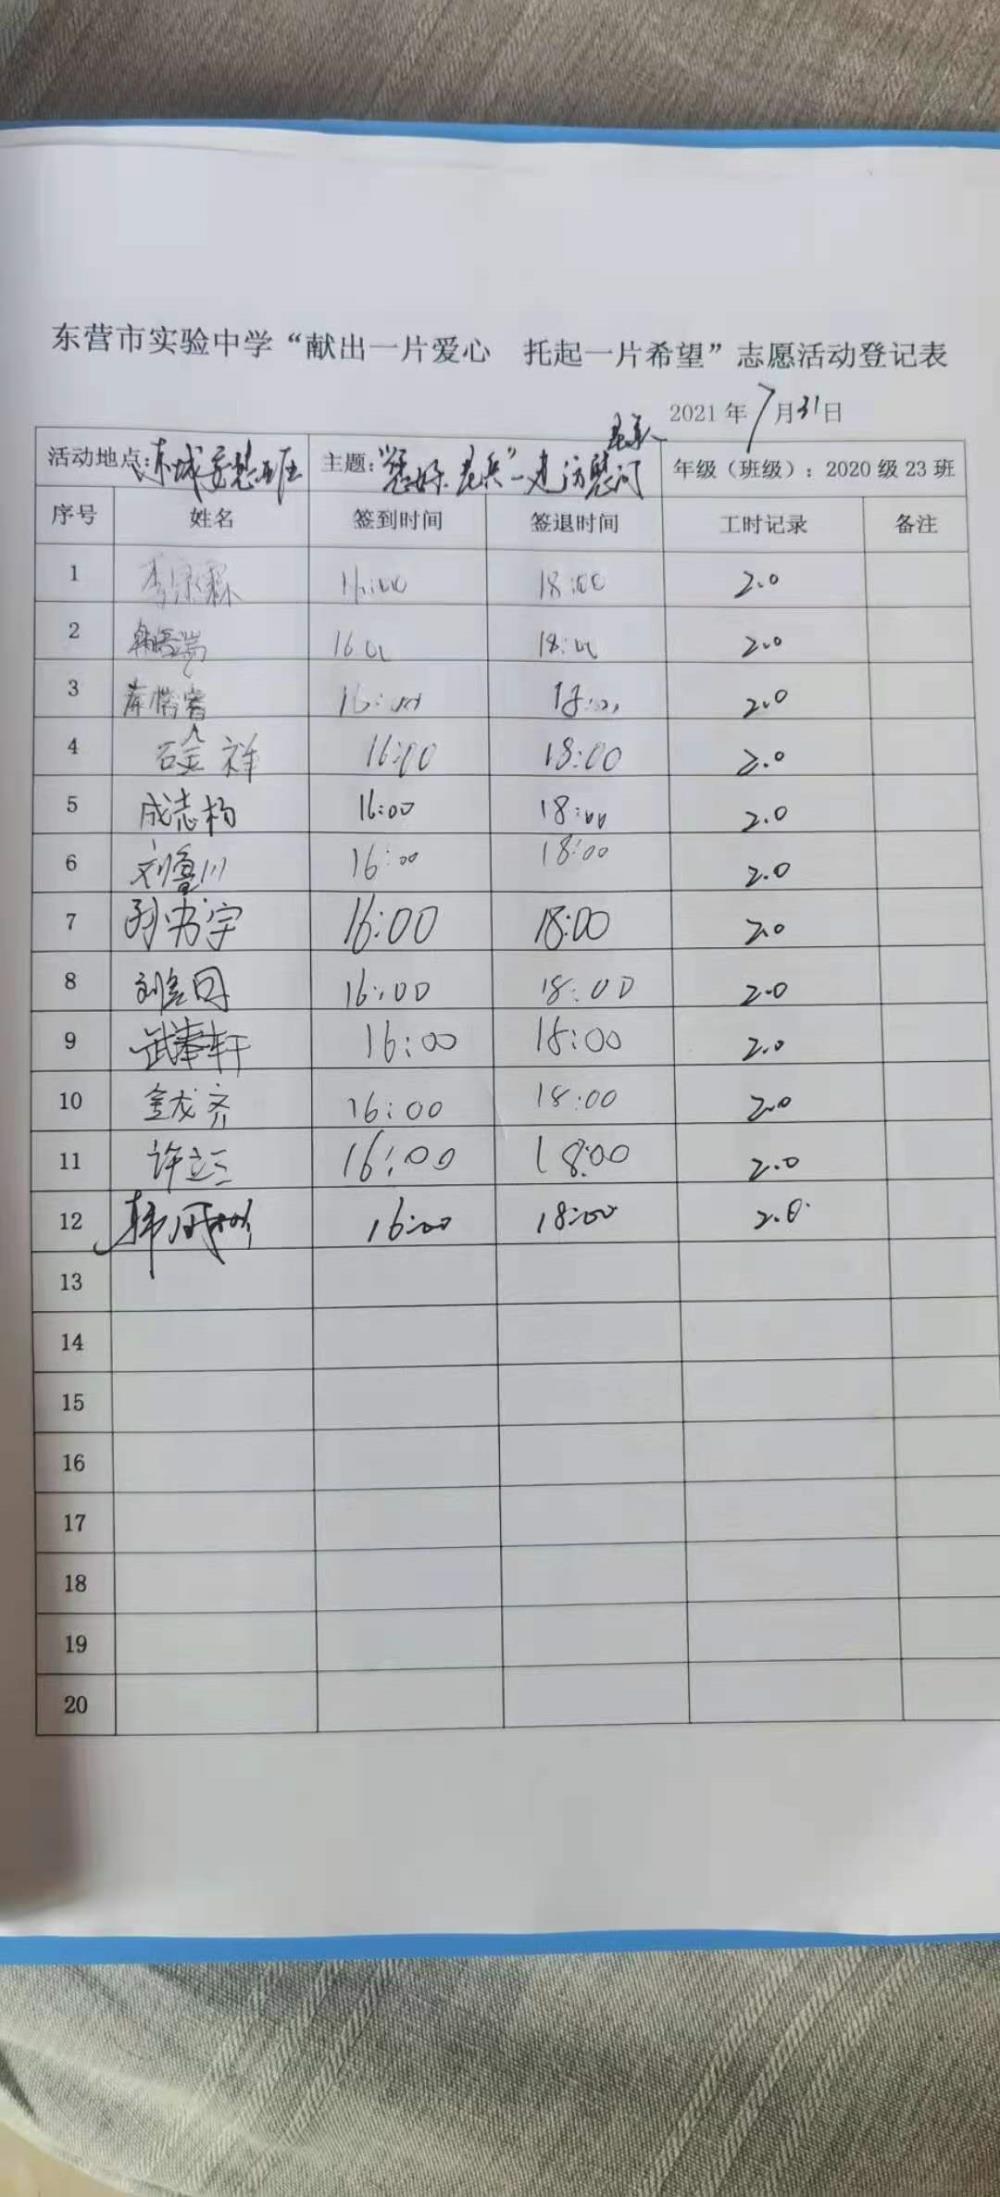 东营市实验中学“献出一片爱心 托起一片希望”志愿活动登记表
2021年7月31日
活动地点: 主题: 年级（班级）：2020级23班
序号 姓名 签到时间 签退时间 工时记录 备注
1 18:00 2.0
2 16:00 18:00 2.0
3 16:00 18:00 2.0
4 石金祥 16:00 18:00 2.0
5 成志杨 16:00 18:00 2.0
6 刘鲁川 16:00 18:00 2.0
7 孙书宇 16:00 18:00 2.0
8 16:00 18:00 2.0
9 武奉轩 16:00 18:00 2.0
10 金龙齐 16:00 18:00 2.0
11 许立三 16:00 18:00 2.0
12 16:00 18:00 2.0
13
14
15
16
17
18
19
20